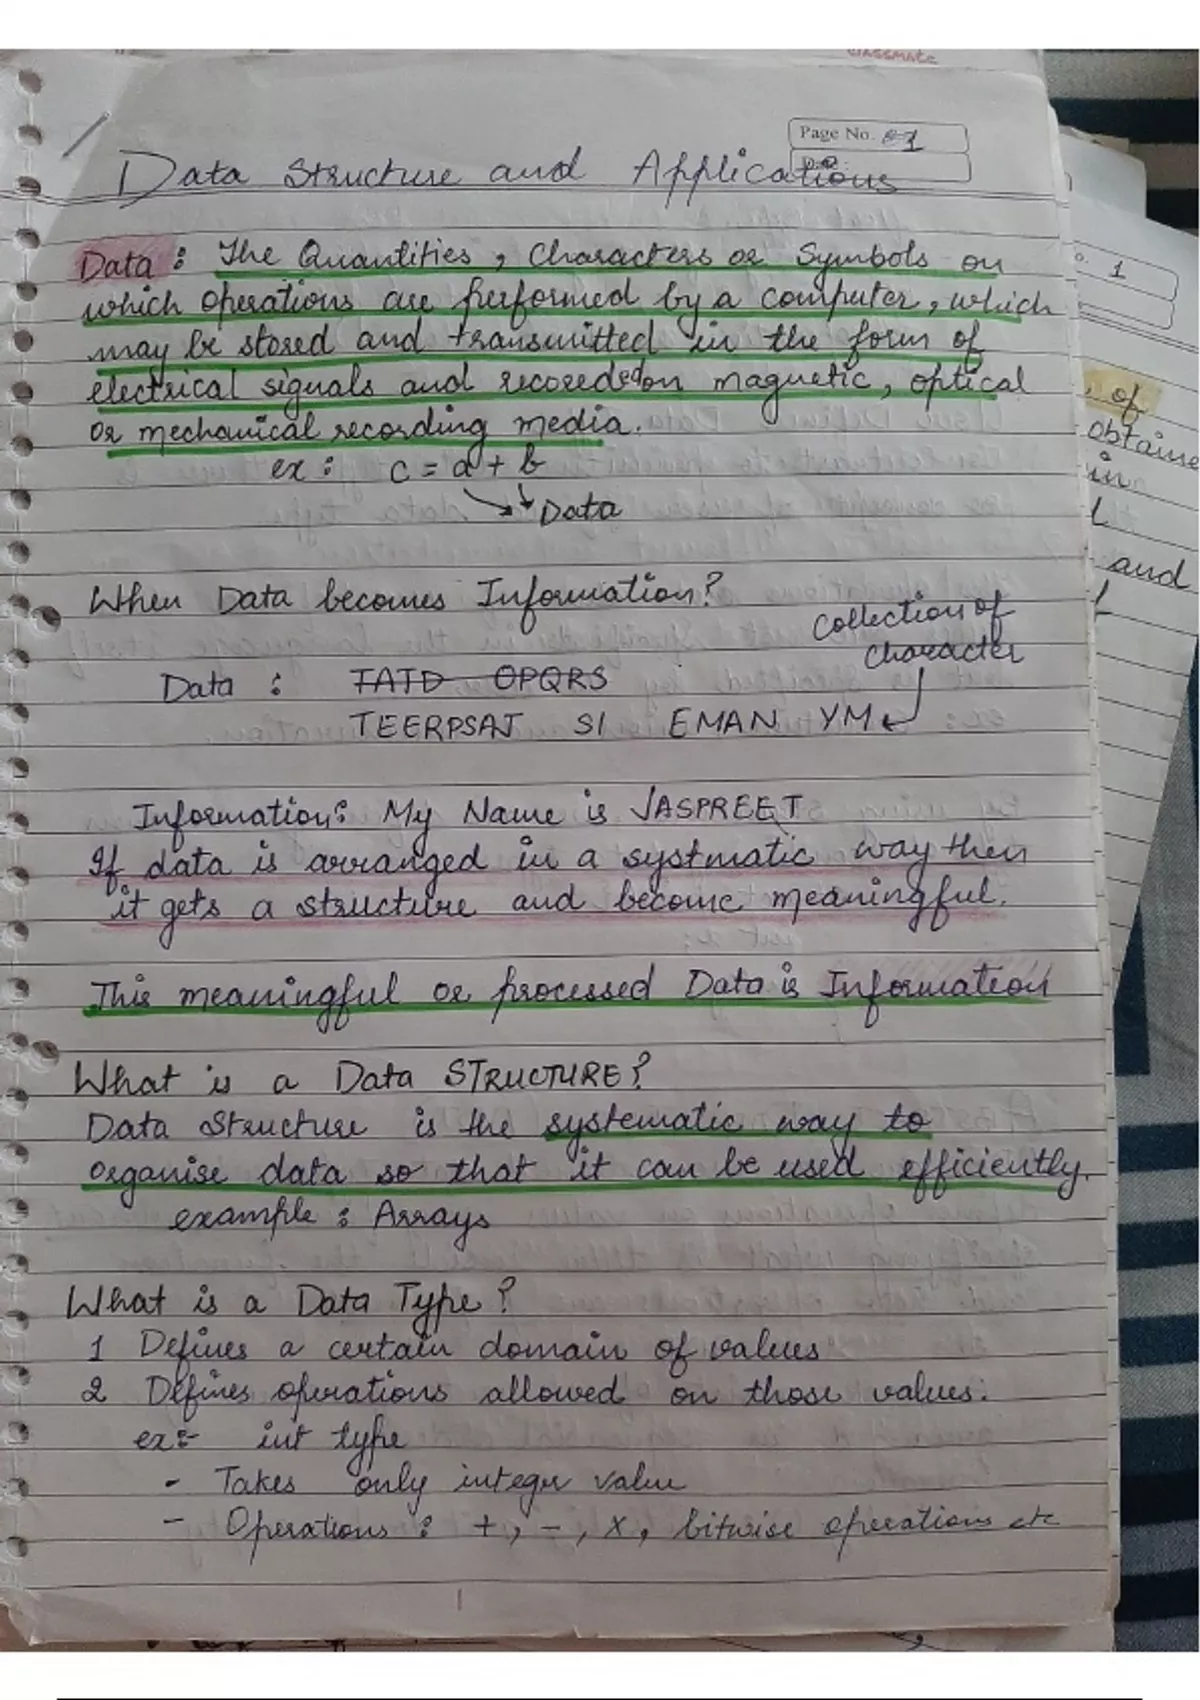 classmate
Page No. 1
Data Structure and Applications
Data : The Quantities, Characters or Symbols on
which operations are performed by a computer, which
may be stored and transmitted in the form of
electrical signals and recorded on magnetic, optical
or mechanical recording media.
ex : c = a + b
Data
When Data becomes Information?
Collection of
character
Data : TATD OPQRS
TEERPSAJ SI EMAN YM
Information: My Name is JASPREET
If data is arranged in a systmatic way then
it gets a structure and become meaningful.
This meaningful or processed Data is Information
What is a Data STRUCTURE?
Data Structure is the systematic way to
organise data so that it can be used efficiently.
example : Arrays
What is a Data Type?
1 Defines a certain domain of values
2 Defines operations allowed on those values.
ex:- int type
- Takes only integer value
- Operations : +, -, x, bitwise operations etc
1
1
of
obtaine
in
and